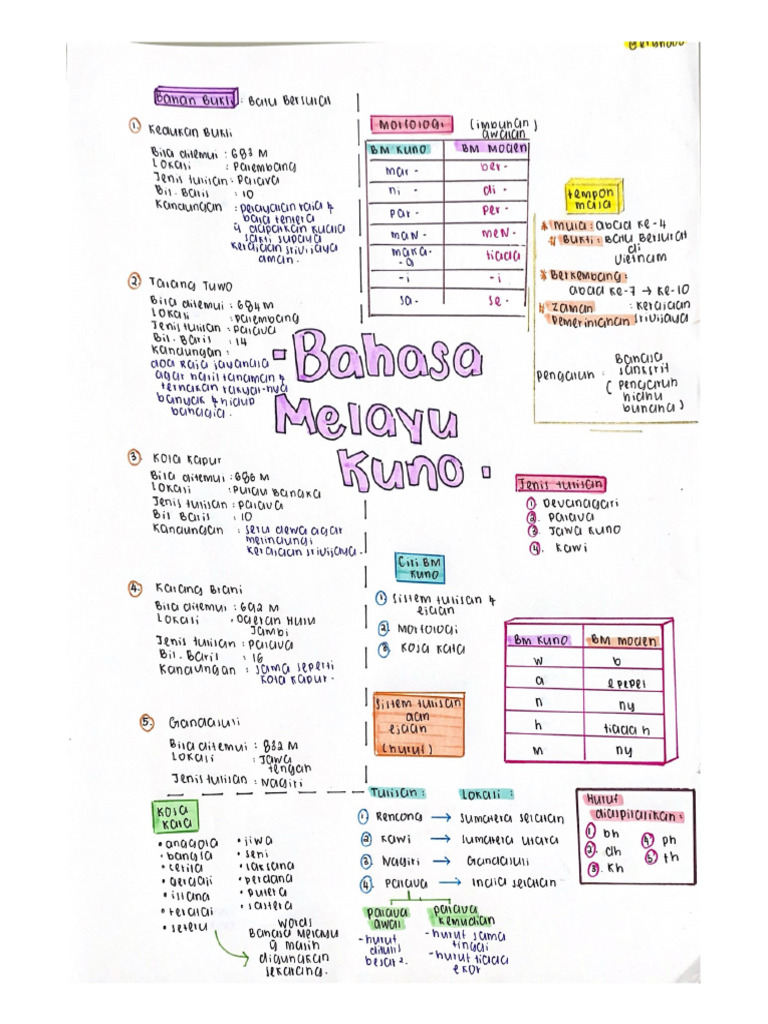 Bahan Bukti : Batu Bersurat
1. Kedukan Bukti
Bila ditemui : 683 M
Lokasi : Palembang
Jenis tulisan : Palava
Bil. Baris : 10
Kandungan : pelayaran raja &
bala tentera
y dapatkan kuala
sakti supaya
kerajaan srivijaya
aman.
2. Talang Tuwo
Bila ditemui : 684 M
Lokasi : Palembang
Jenis tulisan : Palava
Bil. Baris : 14
Kandungan :
doa Raja Jayanaga
agar hasil tanaman &
ternakan rakyat-nya
banyak & hidup
bahagia.
3 Kota Kapur
Bila ditemui : 686 M
Lokasi : Pulau Bangka
Jenis tulisan : Palava
Bil Baris : 10
Kandungan : seru dewa agar
melindungi
kerajaan srivijaya.
4. Karang Brahi
Bila ditemui : 692 M
Lokasi : Daerah Hulu
Jambi
Jenis tulisan : Palava
Bil. Baris : 16
Kandungan : sama seperti
kota kapur.
5. Gandasuli
Bila ditemui : 832 M
Lokasi : Jawa
tengah
Jenis tulisan : Nagiri
Morfologi (imbuhan)
awalan
BM Kuno BM Moden
mar- ber-
ni- di-
par- per-
maN- meN-
maka- tiada
-a
-i -i
sa- se-
tempoh
masa
* Mula : abad ke-4
* Bukti : Batu Bersurat
di
Vietnam
* Berkembang :
abad ke-7 → ke-10
* Zaman : kerajaan
pemerintahan srivijaya
Pengaruh : Bahasa
sanskrit
( Pengaruh
hindhu
buddha )
• Bahasa
Melayu
Kuno •
Jenis tulisan
1 Devanagari
2. Palava
3 Jawa Kuno
4. Kawi
Ciri BM
Kuno
1. Sistem tulisan &
ejaan
2. Morfologi
3 Kosa kata
BM Kuno BM Moden
w b
a e pepet
n ny
h tiada h
m ny
Sistem tulisan
dan
ejaan
(huruf)
Tulisan : Lokasi :
1 Rencong → Sumatera selatan
2 Kawi → Sumatera utara
3 Nagiri → Gandasuli
4. Palava → India selatan
Palava
awal
- huruf
ditulis
besar².
palava
kemudian
- huruf sama
tinggi
- huruf tiada
ekor
Huruf
diaspirasikan :
1 bh
2. dh
3. Kh
4. ph
5. th
Kosa
kata
• anggota
• bangsa
• cerita
• gergaji
• istana
• teratai
• seteru
• jiwa
• seni
• laksana
• perdana
• putera
• sastera
words
Bahasa Melayu
y masih
digunakan
sekarang.